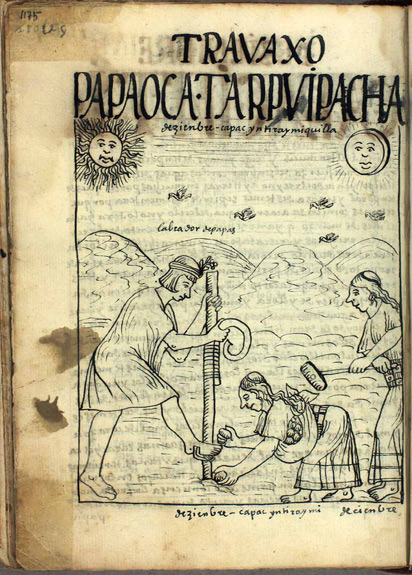 1175
TRAVAXO
PAPAOCA·TARPVIPACHA
dezienbre - capac yntiraymiquilla
labrador de papas
dezienbre - capac yntiraymi
decienbre